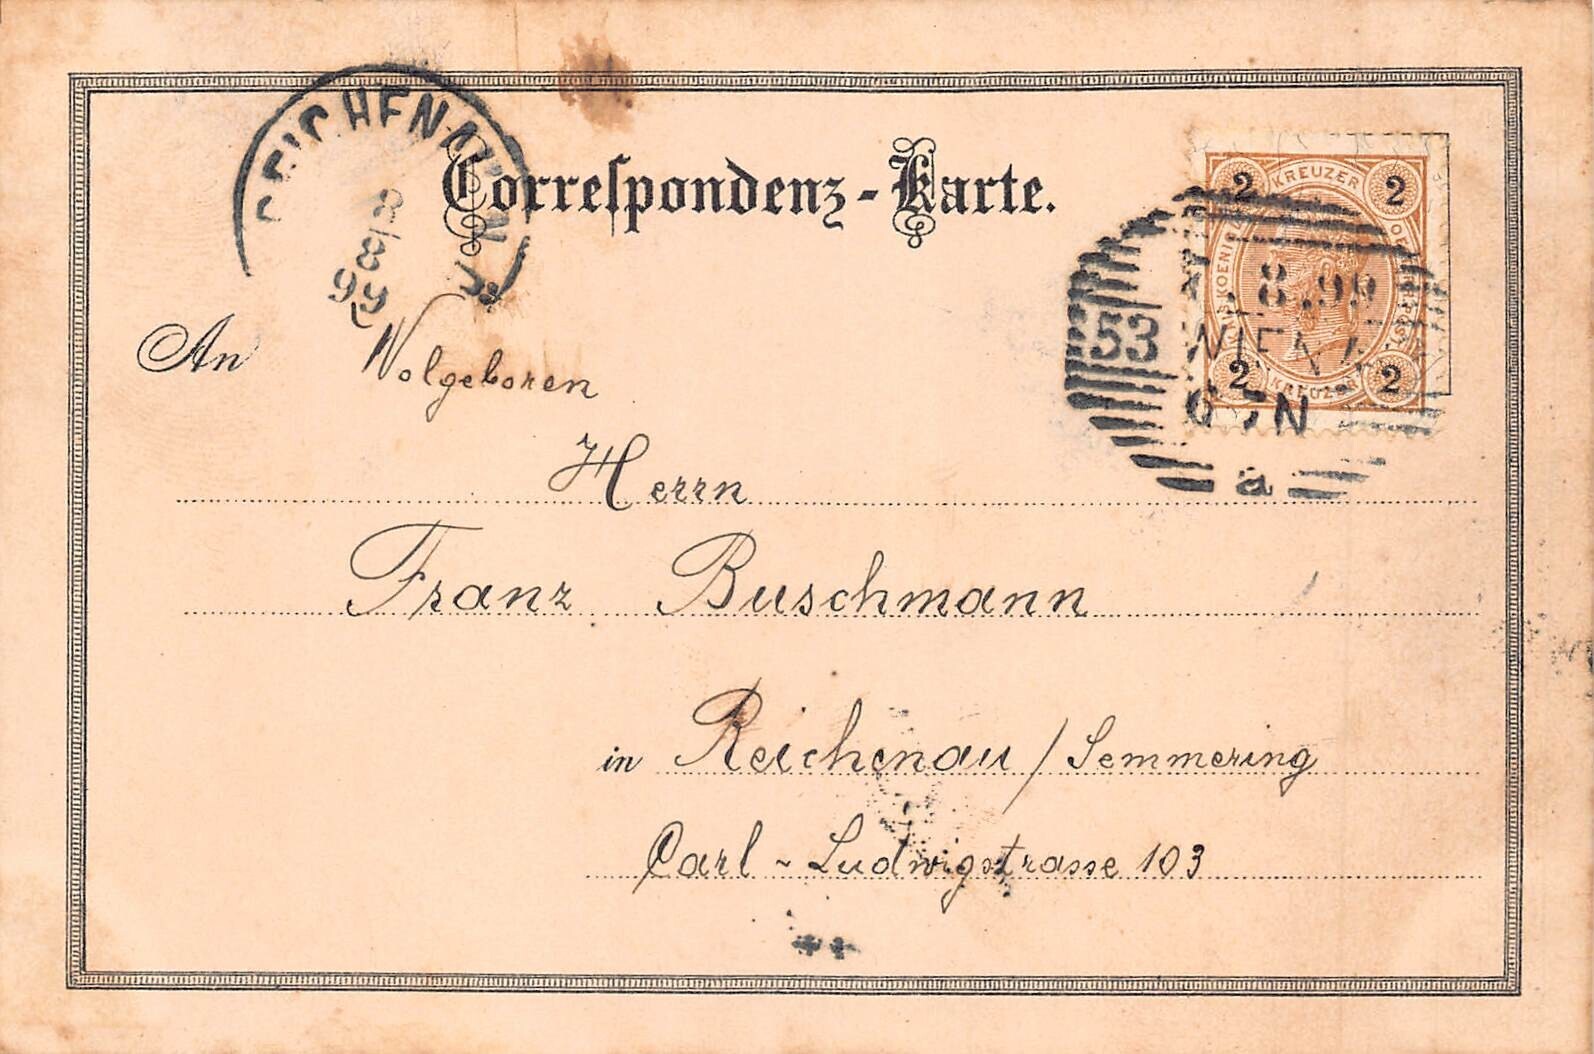 REICHENAU N.Ö.
8/8 99
Correspondenz-Karte.
2 KREUZER 2
8.99
53 WIEN 4
6-7N
2 KREUZER 2
a
An Wolgeboren
Herrn
Franz Buschmann
in Reichenau / Semmering
Carl-Ludwigstrasse 103